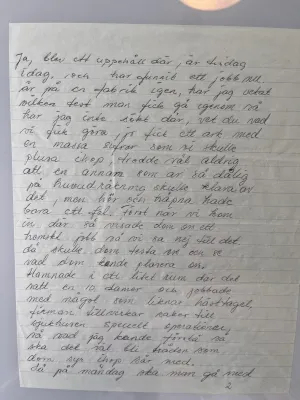 Ja, blev ett uppehåll där, är tisdag
idag, och har ett jobb nu.
är på en fabrik igen, har jag
vilken test man fick gå igenom så
har jag inte sökt där, vet du vad
vi fick göra, jo fick ett ark med
en massa siffror som vi skulle
plussa ihop, trodde väl aldrig
att en annan som är så dålig
på huvudräkning skulle klara av
det, men hör och häpna hade
bara ett fel. Först när vi kom
in där så visade dom en ett
hemskt jobb så vi sa nej till det
då skulle dom testa oss och se
vad dom kunde placera oss.
Hamnade i ett litet rum där det
satt en 10 damer och jobbade
med något som liknar hästtagel.
firman tillverkar saker till
sjukhusen speciellt operationer,
så vad jag kunde förstå så
ska det väl bli tråden som
dom syr ihop sår med.
Då på måndag ska man gå med
2